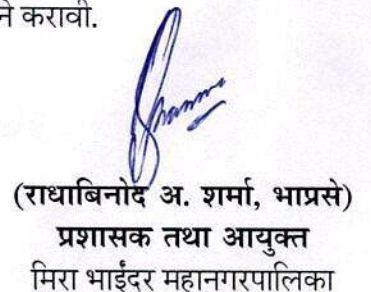 ने करावी.
(राधाबिनोद अ. शर्मा, भाप्रसे)
प्रशासक तथा आयुक्त
मिरा भाईंदर महानगरपालिका